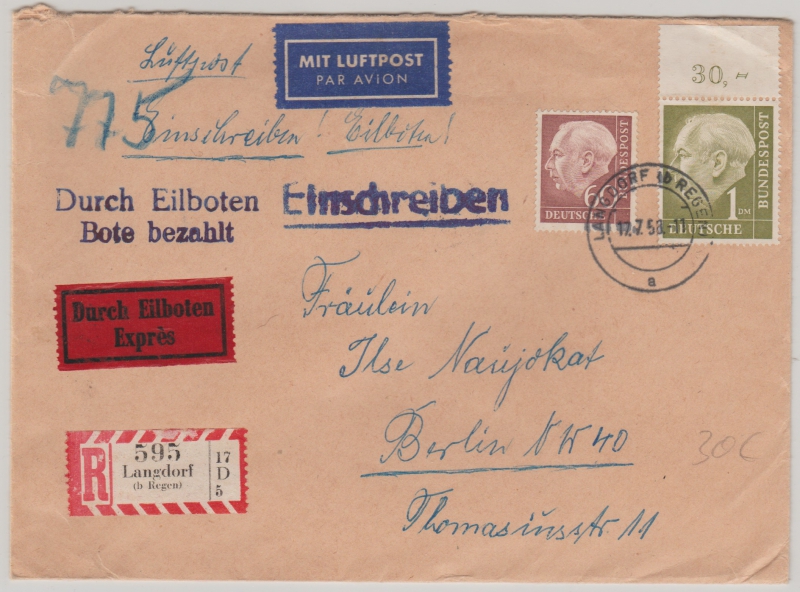 Luftpost
MIT LUFTPOST
PAR AVION
775
Einschreiben! Eilboten!
30,
60
DEUTSCHE BUNDESPOST
1 DM
DEUTSCHE BUNDESPOST
LANGDORF (b REGEN)
17.7.58.-11
a
Durch Eilboten
Bote bezahlt
Einschreiben
Durch Eilboten
Exprès
Fräulein
Ilse Naujokat
Berlin NW 40
Thomasiusstr. 11
R
595
Langdorf
(b Regen)
17
D
5
30€